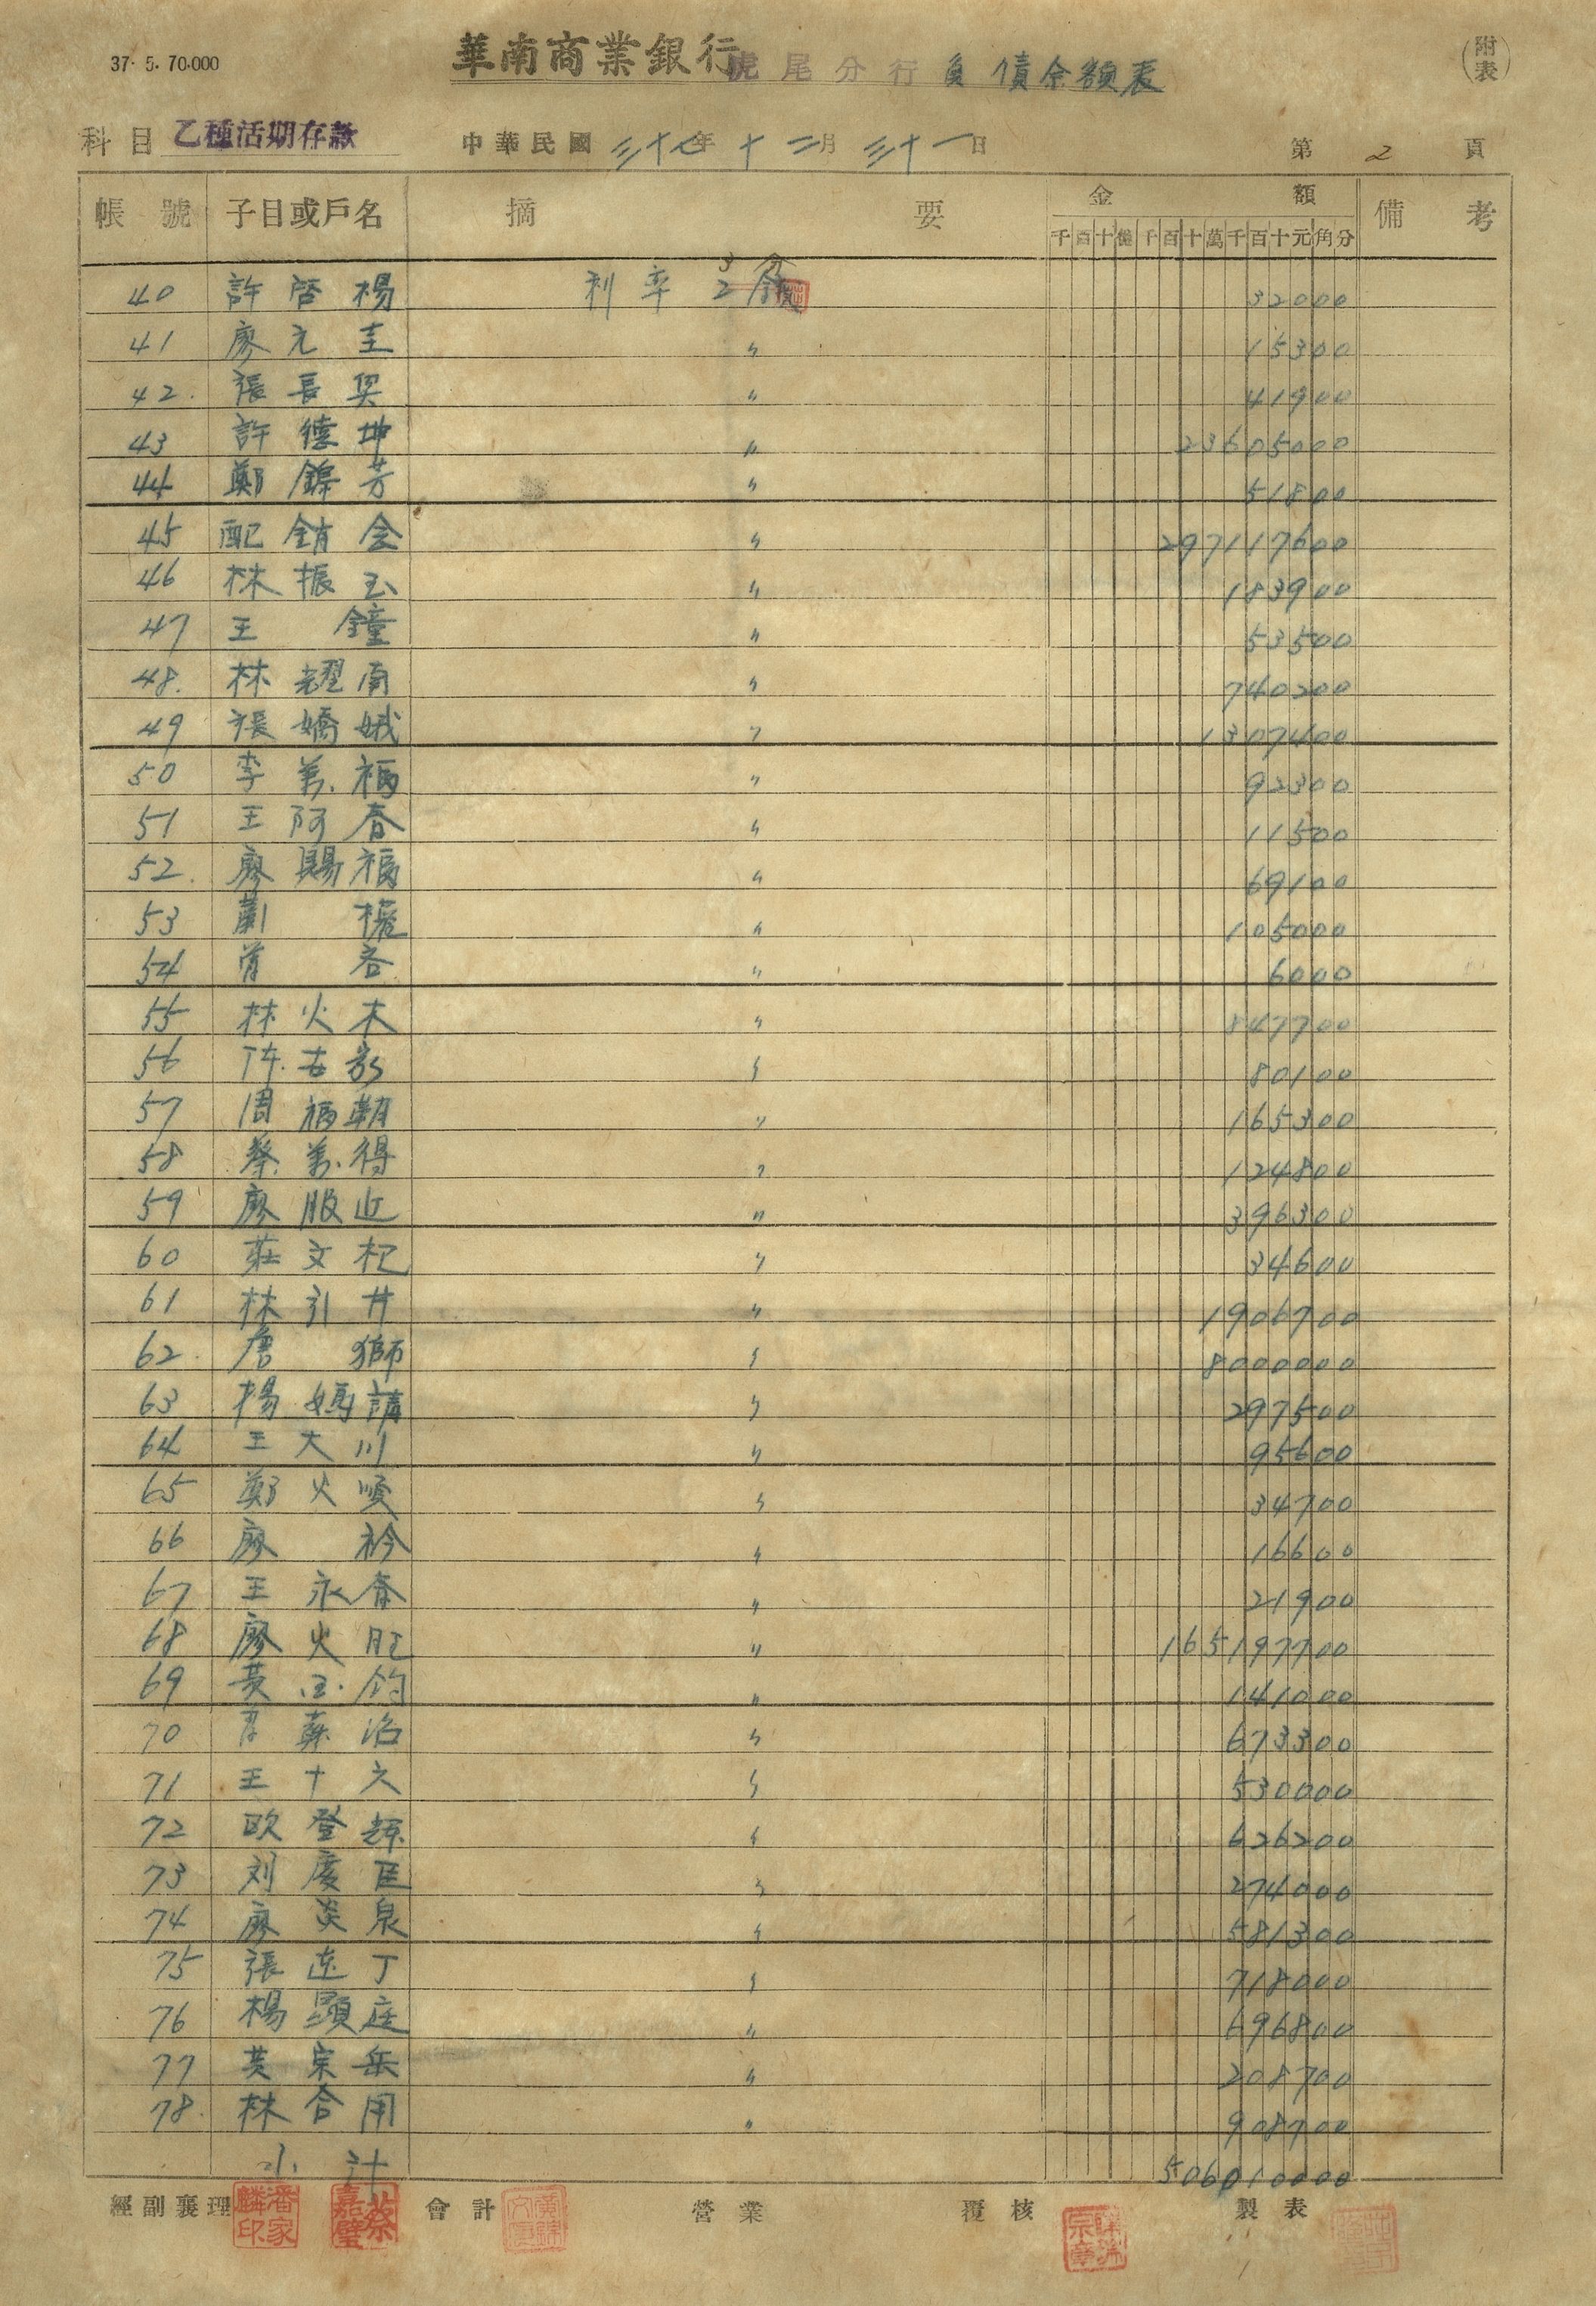 37. 5. 70.000
華南商業銀行虎尾分行負債余額表
(附表)
科目 乙種活期存款 中華民國三十七年十二月三十一日 第2頁
帳號 子目或戶名 摘要 金額 備考
千百十億千百十萬千百十元角分
40 許啓楊 利率 3分 32000
41 廖元圭 〃 15300
42. 張長與 〃 41900
43 許德坤 〃 23605000
44 鄭錦芳 〃 51800
45 配銷会 〃 297117600
46 林振玉 〃 183900
47 王鐘 〃 53500
48. 林耀南 〃 740200
49 張嬌娥 〃 1307400
50 李萬福 〃 92300
51 王阿春 〃 11500
52. 廖賜福 〃 69100
53 〃 105000
54 〃 6000
55 林火木 〃 847700
56 〃 80100
57 周福朝 〃 165300
58 蔡萬得 〃 124800
59 廖服近 〃 396300
60 莊文杞 〃 34600
61 林引井 〃 1906700
62. 詹獅 〃 8000000
63 楊媽講 〃 297500
64 王大川 〃 95600
65 鄭火順 〃 34700
66 廖衿 〃 16600
67 王永春 〃 21900
68 廖火旺 〃 165197700
69 黃 〃 141000
70 〃 673300
71 王十六 〃 530000
72 欧登輝 〃 626200
73 刘慶臣 〃 274000
74 廖炎泉 〃 581300
75 張連丁 〃 718000
76 楊顕庭 〃 696800
77 黃宗岳 〃 208700
78. 林合用 〃 908700
小計 506010000
經副襄理 潘家麟印 蔡嘉璧 會計 營業 覆核 製表